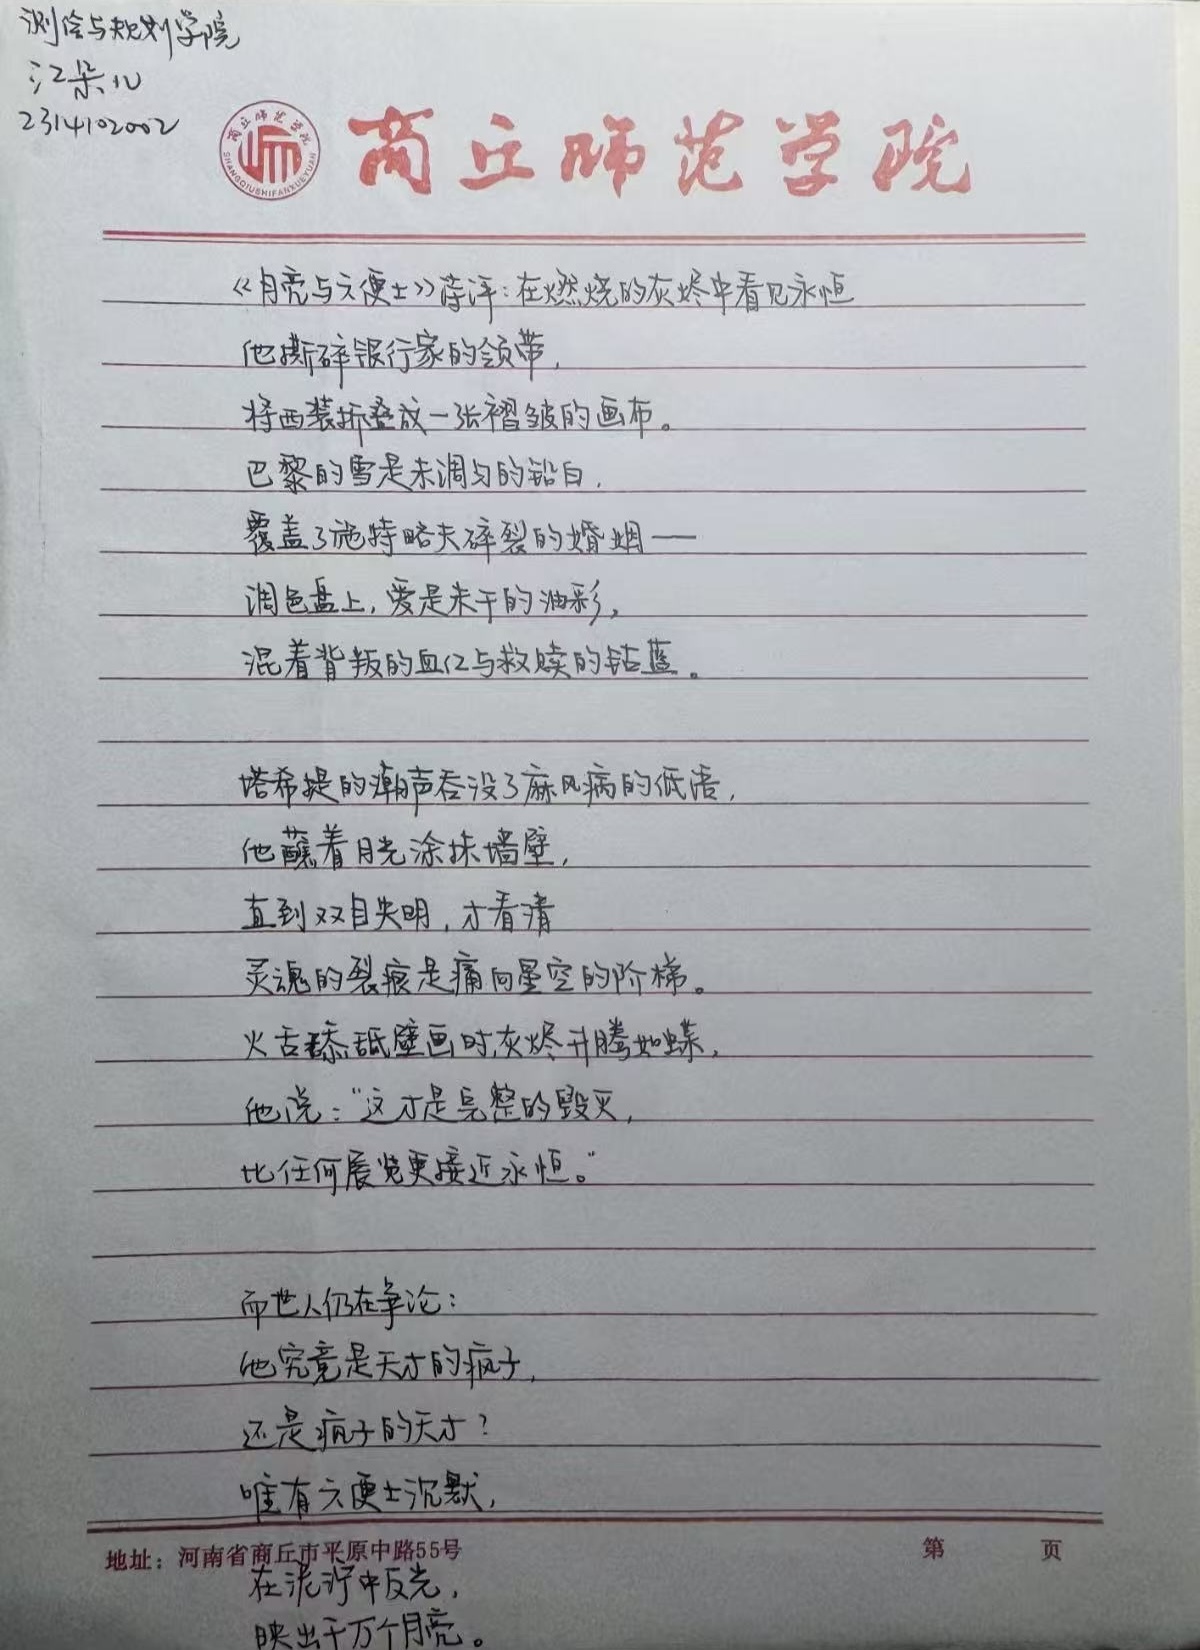 测绘与规划学院
江朵儿
2314102002
商丘师范学院
SHANGQIUSHIFANXUEYUAN
商丘师范学院
《月亮与六便士》诗评：在燃烧的灰烬中看见永恒
他撕碎银行家的领带，
将西装折叠成一张褶皱的画布。
巴黎的雪是未调匀的铅白，
覆盖了施特略夫碎裂的婚姻——
调色盘上，爱是未干的油彩，
混着背叛的血红与救赎的钴蓝。
塔希提的潮声吞没了麻风病的低语，
他蘸着月光涂抹墙壁，
直到双目失明，才看清
灵魂的裂痕是痛向星空的阶梯。
火舌舔舐壁画时，灰烬升腾如蝶，
他说：“这才是完整的毁灭，
比任何展览更接近永恒。”
而世人仍在争论：
他究竟是天才的疯子，
还是疯子的天才？
唯有六便士沉默，
地址：河南省商丘市平原中路55号
第 页
在泥泞中反光，
映出千万个月亮。